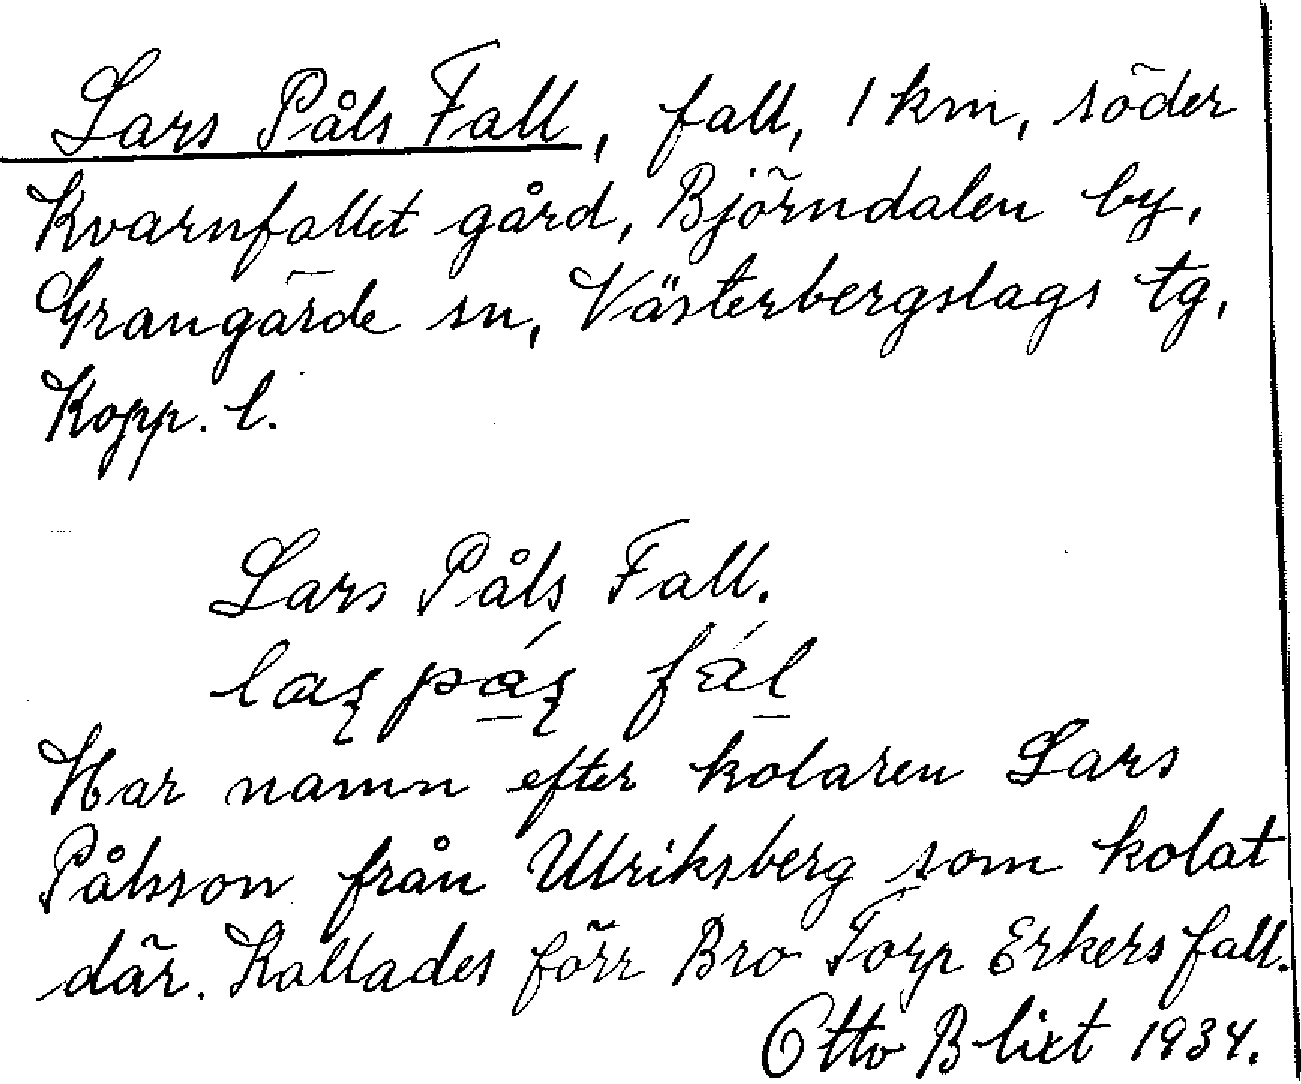 Lars Påls Fall, fall, 1 km, söder
Kvarnfallet gård, Björndalen by,
Grangärde sn, Västerbergslags tg,
Kopp. l.
Lars Påls Fall.
Har namn efter kolaren Lars
Pålsson från Ulriksberg som kolat
där. Kallades förr Bro Torp Erkers fall.
Otto Blixt 1934.